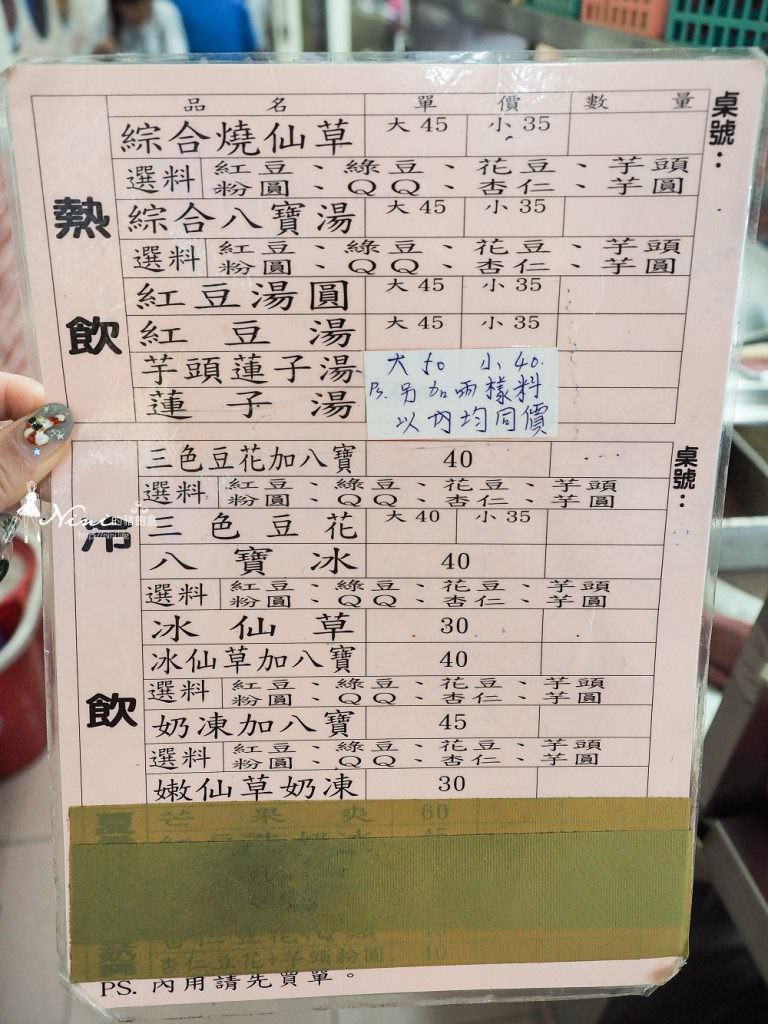 品名 單價 數量
桌號：
熱飲
綜合燒仙草 大45 小35
選料 紅豆、綠豆、花豆、芋頭
粉圓、QQ、杏仁、芋圓
綜合八寶湯 大45 小35
選料 紅豆、綠豆、花豆、芋頭
粉圓、QQ、杏仁、芋圓
紅豆湯圓 大45 小35
紅豆湯 大45 小35
芋頭蓮子湯
蓮子湯
大50 小40.
Ps. 另加兩樣料
以內均同價
桌號：
冷飲
三色豆花加八寶 40
選料 紅豆、綠豆、花豆、芋頭
粉圓、QQ、杏仁、芋圓
三色豆花 大40 小35
八寶冰 40
選料 紅豆、綠豆、花豆、芋頭
粉圓、QQ、杏仁、芋圓
冰仙草 30
冰仙草加八寶 40
選料 紅豆、綠豆、花豆、芋頭
粉圓、QQ、杏仁、芋圓
奶凍加八寶 45
選料 紅豆、綠豆、花豆、芋頭
粉圓、QQ、杏仁、芋圓
嫩仙草奶凍 30
芒果爽 60
杏仁豆花+芋頭粉圓 40
PS. 內用請先買單。